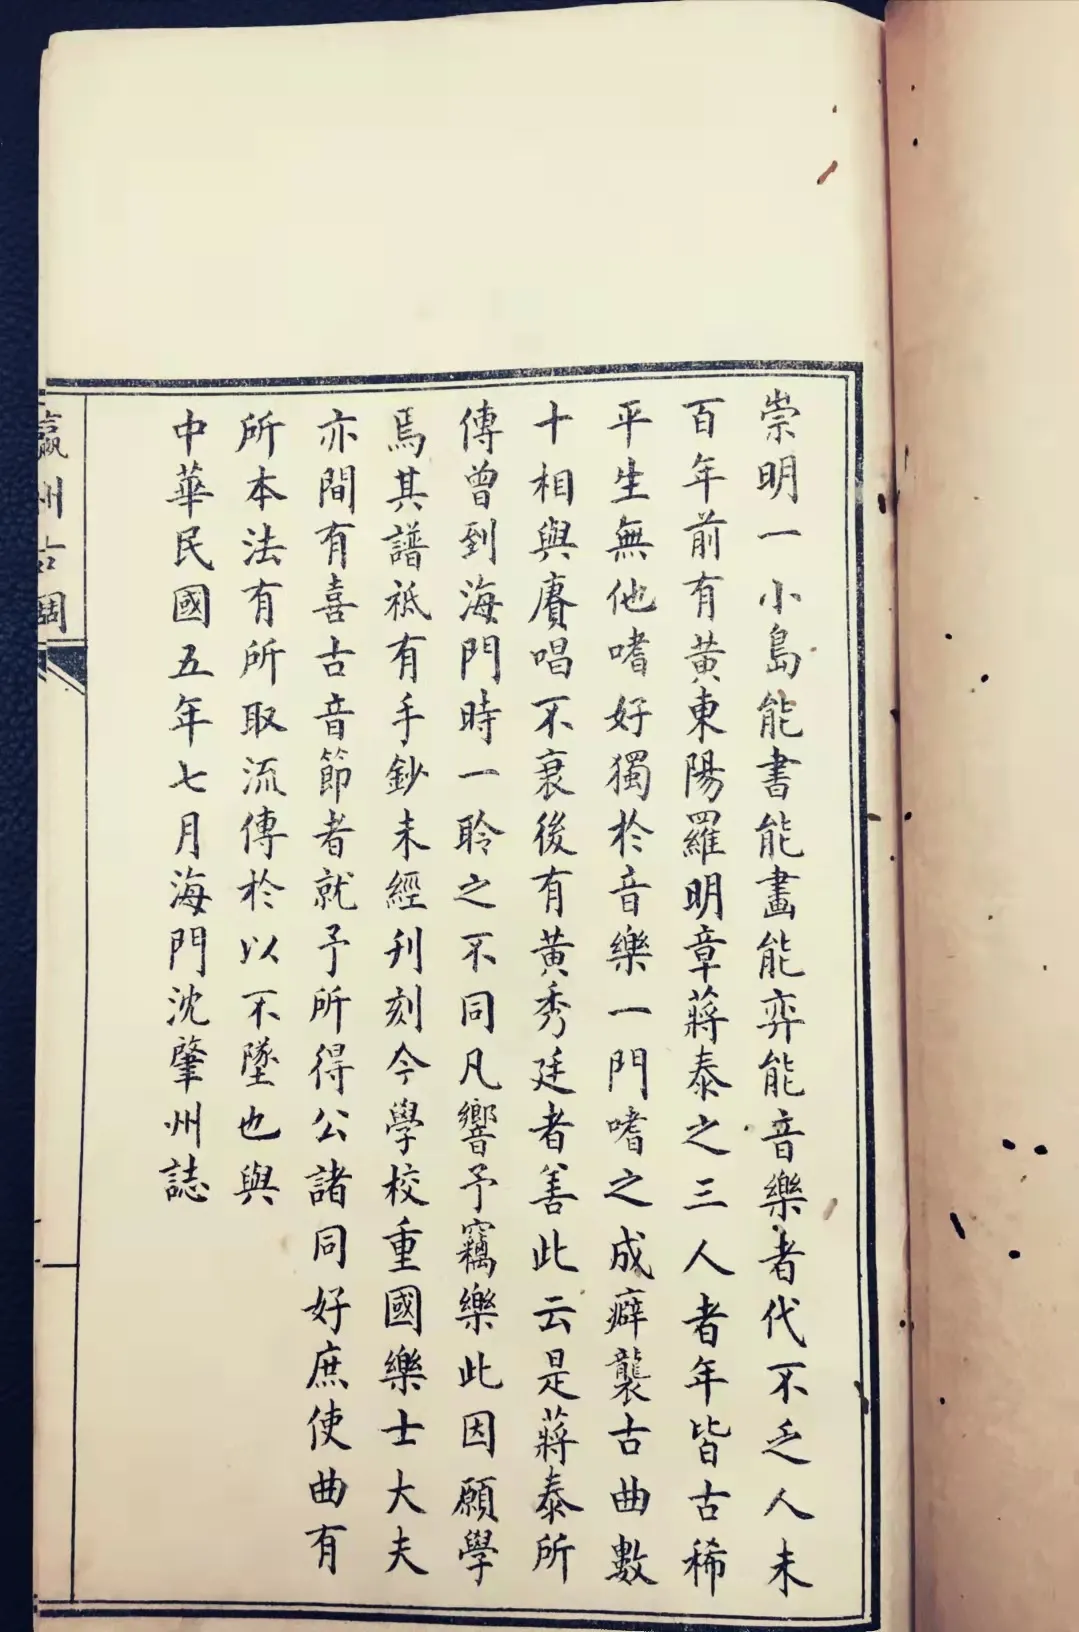 崇明一小島能書能畫能弈能音樂者代不乏人未
百年前有黃東陽羅明章蔣泰之三人者年皆古稀
平生無他嗜好獨於音樂一門嗜之成癖襲古曲數
十相與賡唱不衰後有黃秀廷者善此云是蔣泰所
傳曾到海門時一聆之不同凡響予竊樂此因願學
焉其譜祗有手鈔未經刋刻今學校重國樂士大夫
亦間有喜古音節者就予所得公諸同好庶使曲有
所本法有所取流傳於以不墜也與
中華民國五年七月海門沈肇州誌
瀛州古調